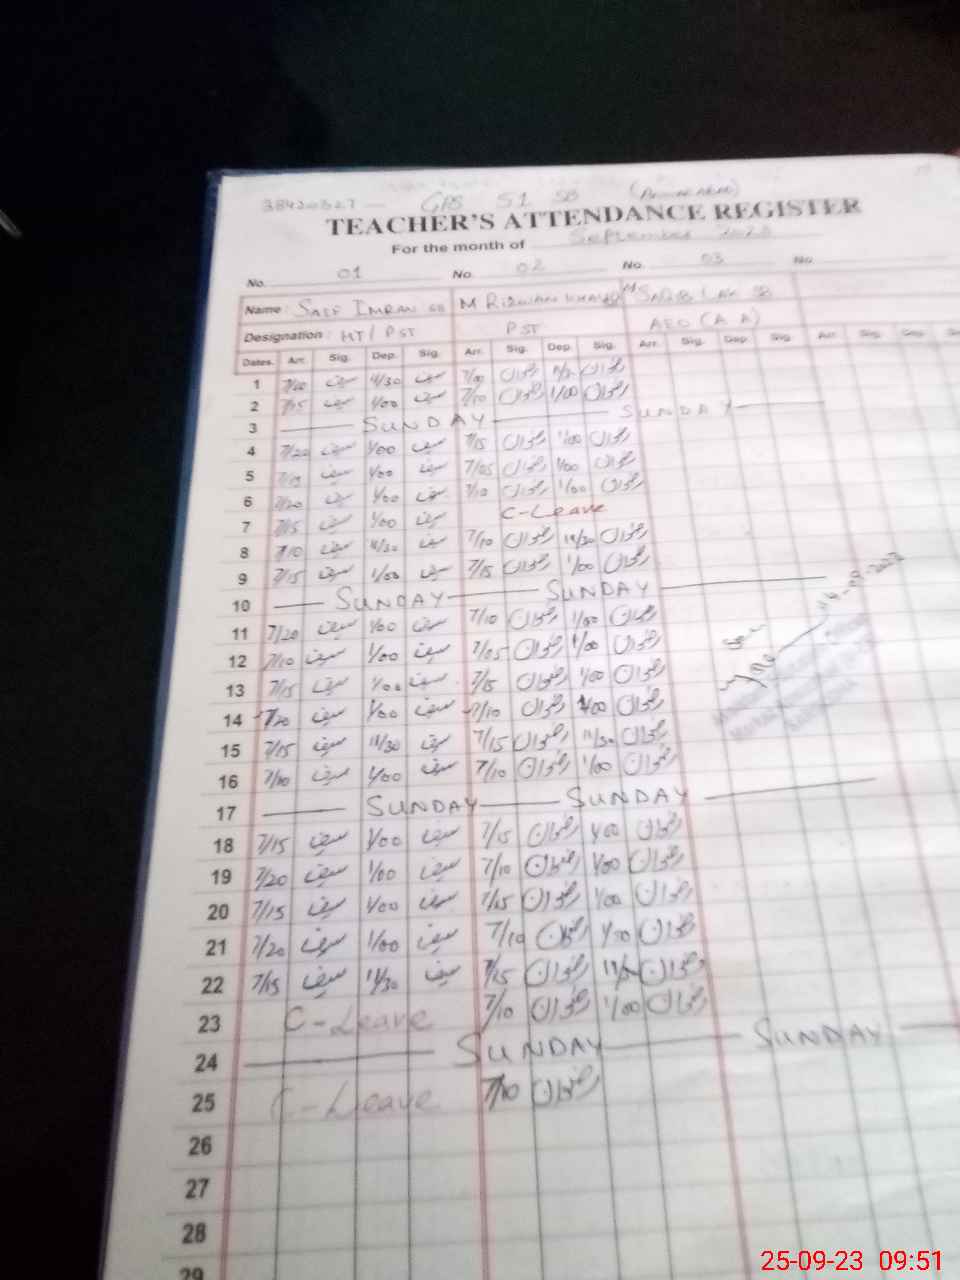 38420327 — GPS 51 SB
TEACHER'S ATTENDANCE REGISTER
For the month of September
No. 01 No. 02 No. 03 No.
Name: SAIF IMRAN SB M RIZWAN
Designation: HT/PST PST AEO (A A)
Dates. Arr. Sig. Dep. Sig. Arr. Sig. Dep. Sig. Arr. Sig. Dep. Sig. Arr. Sig. Dep. Sig.
1 7/20 سیف 11/30 سیف 7/00 رضوان رضوان
2 7/15 سیف 1/00 سیف 7/10 رضوان 1/00 رضوان
3 SUNDAY SUNDAY
4 7/20 سیف 1/00 سیف 7/15 رضوان 1/00 رضوان
5 7/15 سیف 1/00 سیف 7/05 رضوان 1/00 رضوان
6 7/20 سیف 1/00 سیف 7/10 رضوان 1/00 رضوان
7 7/15 سیف 1/00 سیف C-Leave
8 7/10 سیف 11/30 سیف 7/10 رضوان 11/30 رضوان
9 7/15 سیف 1/00 سیف 7/15 رضوان 1/00 رضوان
10 SUNDAY SUNDAY
11 7/20 سیف 1/00 سیف 7/10 رضوان 1/00 رضوان
12 7/10 سیف 1/00 سیف 7/05 رضوان 1/00 رضوان
13 7/15 سیف 1/00 سیف 7/15 رضوان 1/00 رضوان
14 7/20 سیف 1/00 سیف 7/10 رضوان 1/00 رضوان
15 7/15 سیف 11/30 سیف 7/15 رضوان 11/30 رضوان
16 7/10 سیف 1/00 سیف 7/10 رضوان 1/00 رضوان
17 SUNDAY SUNDAY
18 7/15 سیف 1/00 سیف 7/15 رضوان 1/00 رضوان
19 7/20 سیف 1/00 سیف 7/10 رضوان 1/00 رضوان
20 7/15 سیف 1/00 سیف 7/15 رضوان 1/00 رضوان
21 7/20 سیف 1/00 سیف 7/10 رضوان رضوان
22 7/15 سیف 11/30 سیف 7/15 رضوان رضوان
23 C-Leave 7/10 رضوان 1/00 رضوان
24 SUNDAY SUNDAY
25 C-Leave 7/10 رضوان
26
27
28
29
25-09-23 09:51